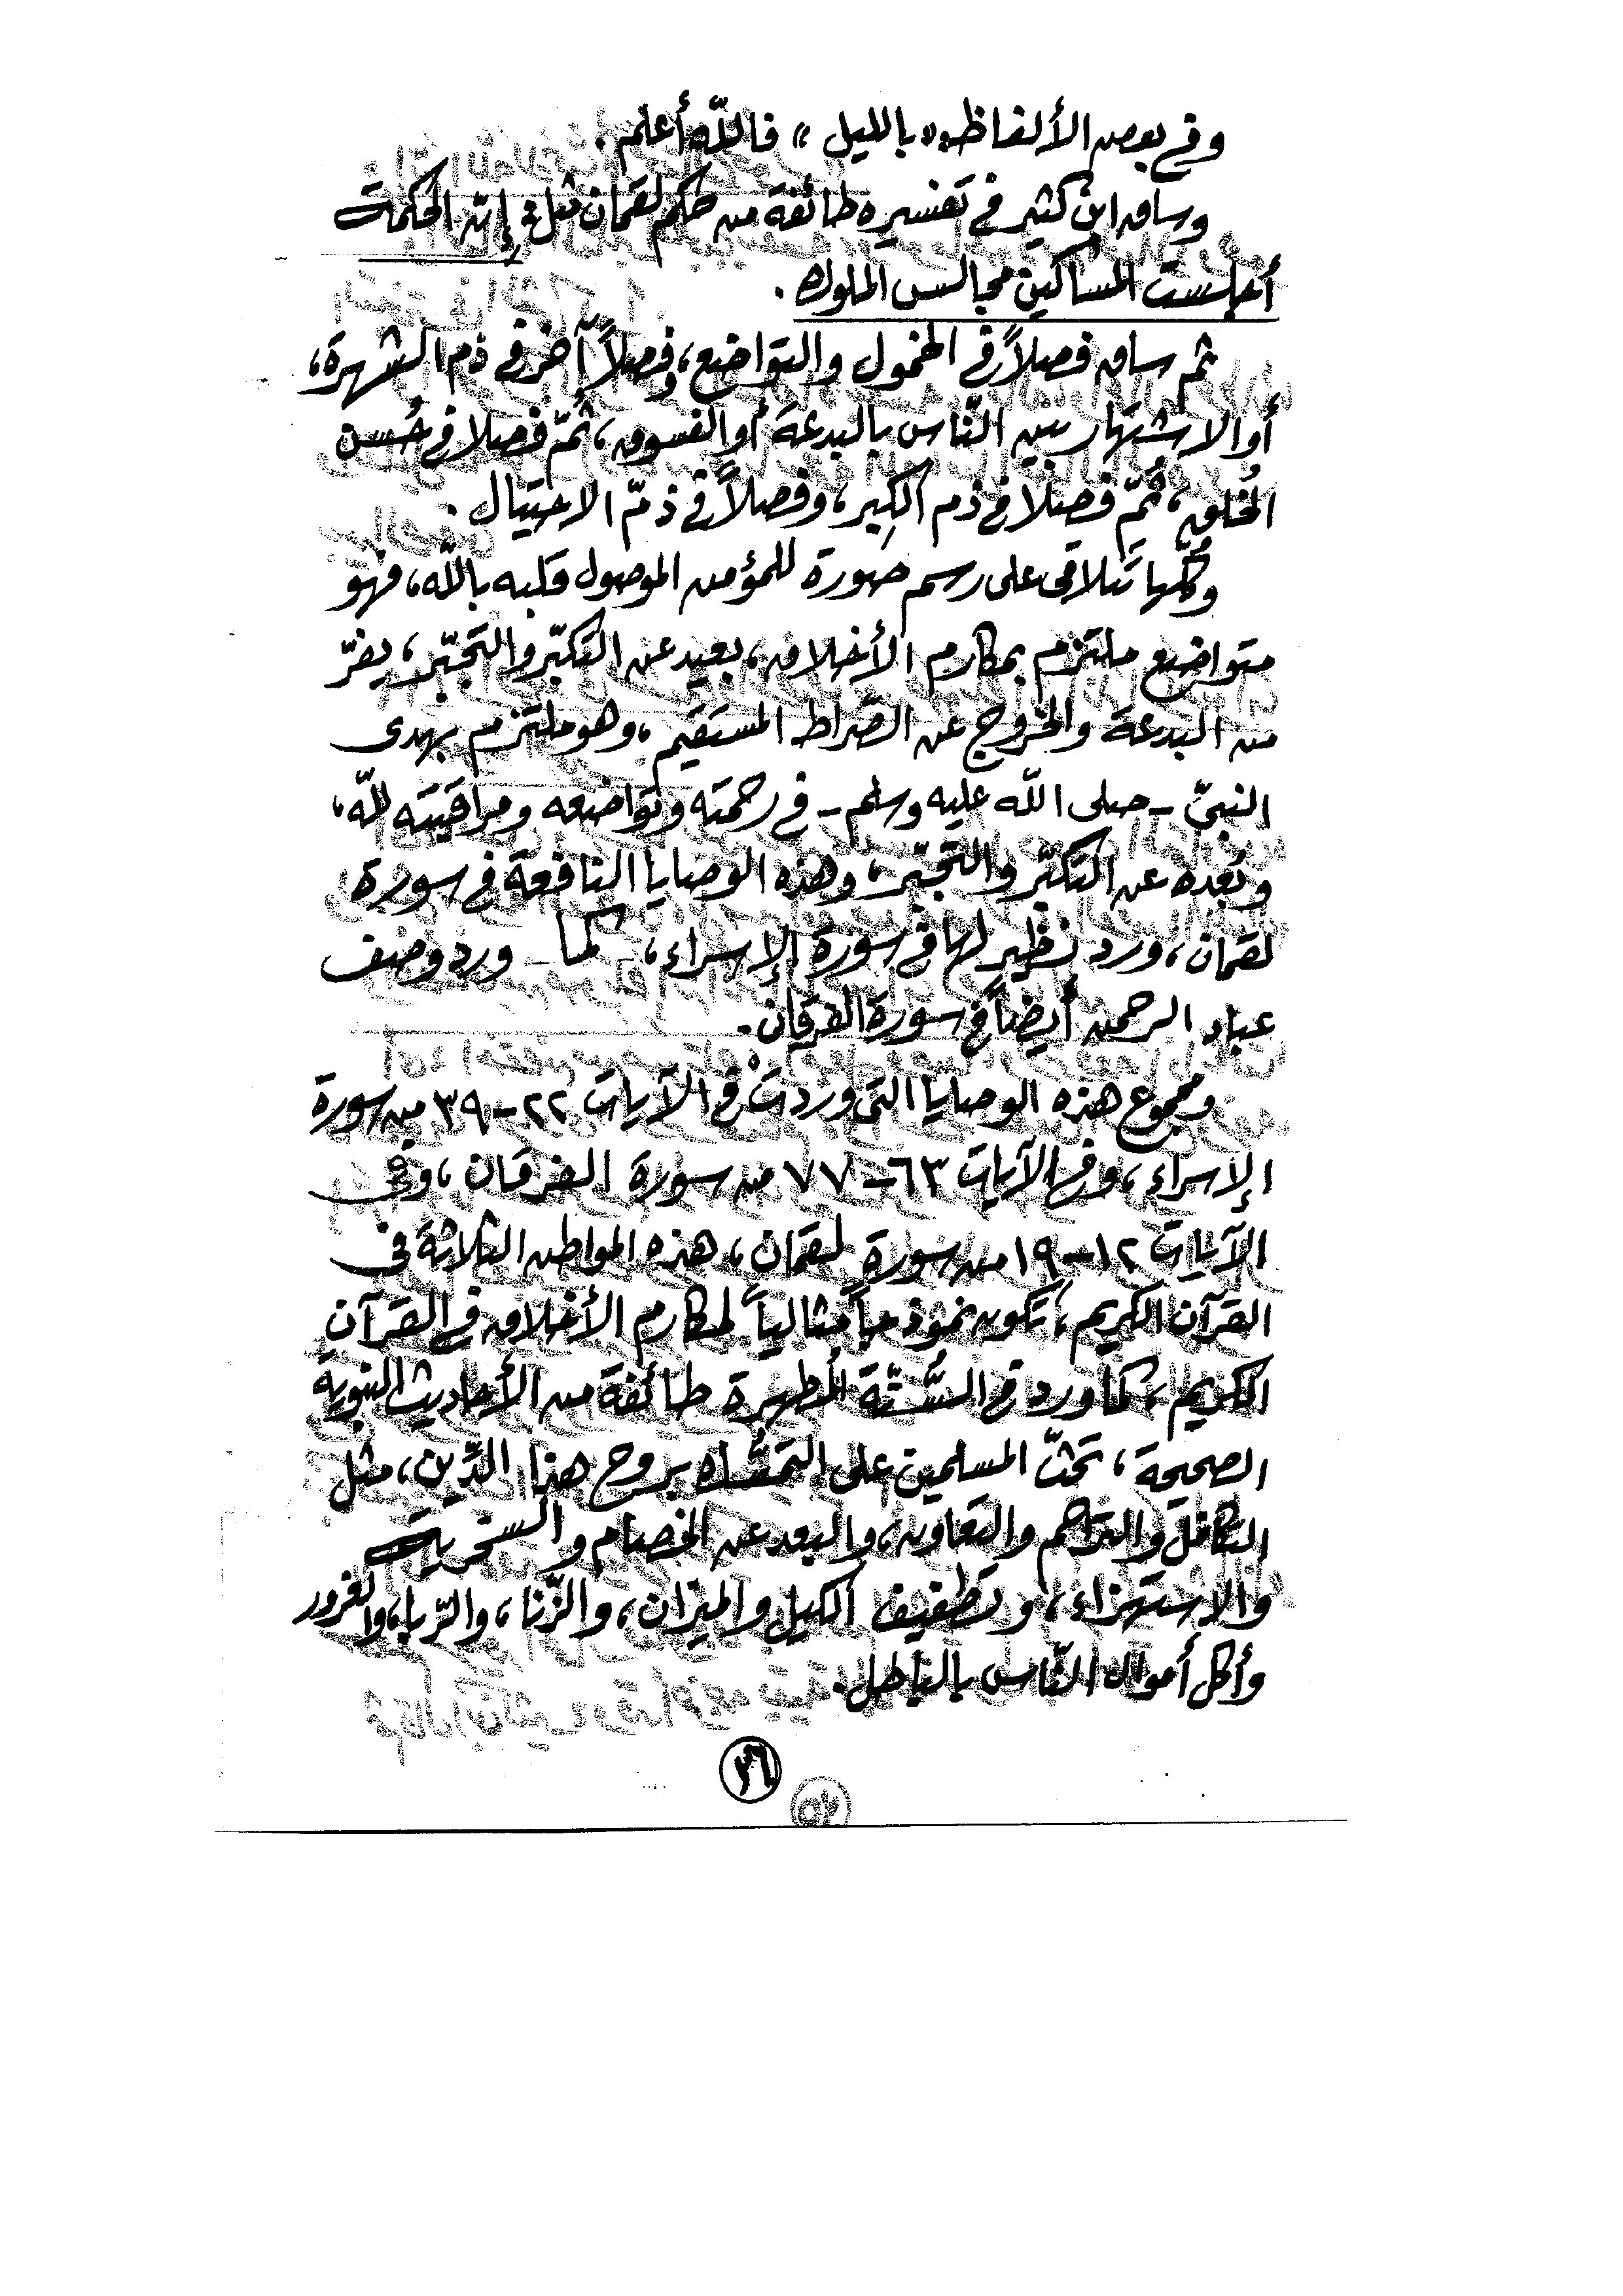 وفي بعض الألفاظ «بالليل» فالله أعلم.
وساق ابن كثير في تفسيره طائفة من حكم لقمان مثل: إنّ الحكمة
أجلست المساكين مجالس الملوك.
ثم ساق فصلاً في الخمول والتواضع، وفصلاً آخر في ذم الشهرة،
أو الاشتهار بين النّاس بالبدعة أو الفسوق، ثُمّ فصلا في حُسن
الخُلق، ثُمّ فصلا في ذم الكِبر، وفصلاً في ذمّ الاختيال.
وكلّها تتلاقى على رسم صورة للمؤمن الموصول قلبه بالله، فهو
متواضع ملتزم بمكارم الأخلاق، بعيد عن التكبّر والتجبّر، يفرّ
من البدعة والخروج عن الصّراط المستقيم، وهو ملتزم بهدى
النبيّ - صلى الله عليه وسلم - في رحمته وتواضعه ومراقبته لله،
وبُعده عن التكبّر والتجبّر، وهذه الوصايا النافعة في سورة
لقمان، ورد نظير لها في سورة الإسراء، كما ورد وصف
عباد الرحمن أيضاً في سورة الفرقان.
ومجموع هذه الوصايا التى وردت في الآيات ٢٢-٣٩ من سورة
الإسراء، وفي الآيات ٦٣-٧٧ من سورة الفرقان، وفى
الآيات ١٢-١٩ من سورة لقمان، هذه المواطن الثلاثة في
القرآن الكريم، تكون نموذجاً مثالياً لمكارم الأخلاق في القرآن
الكريم، كما ورد في السُّنّة المُطهرة طائفة من الأحاديث النبوية
الصحيحة، تحثّ المسلمين على التمسُّك بروح هذا الدِّين، مثل
التكافل والتراحم والتعاون، والبعد عن الخصام والسخرية
والاستهزاء، وتطفيف الكيل والميزان، والزّنا، والرّبا، والغرور
وأكل أموال النّاس بالباطل.
٢٦